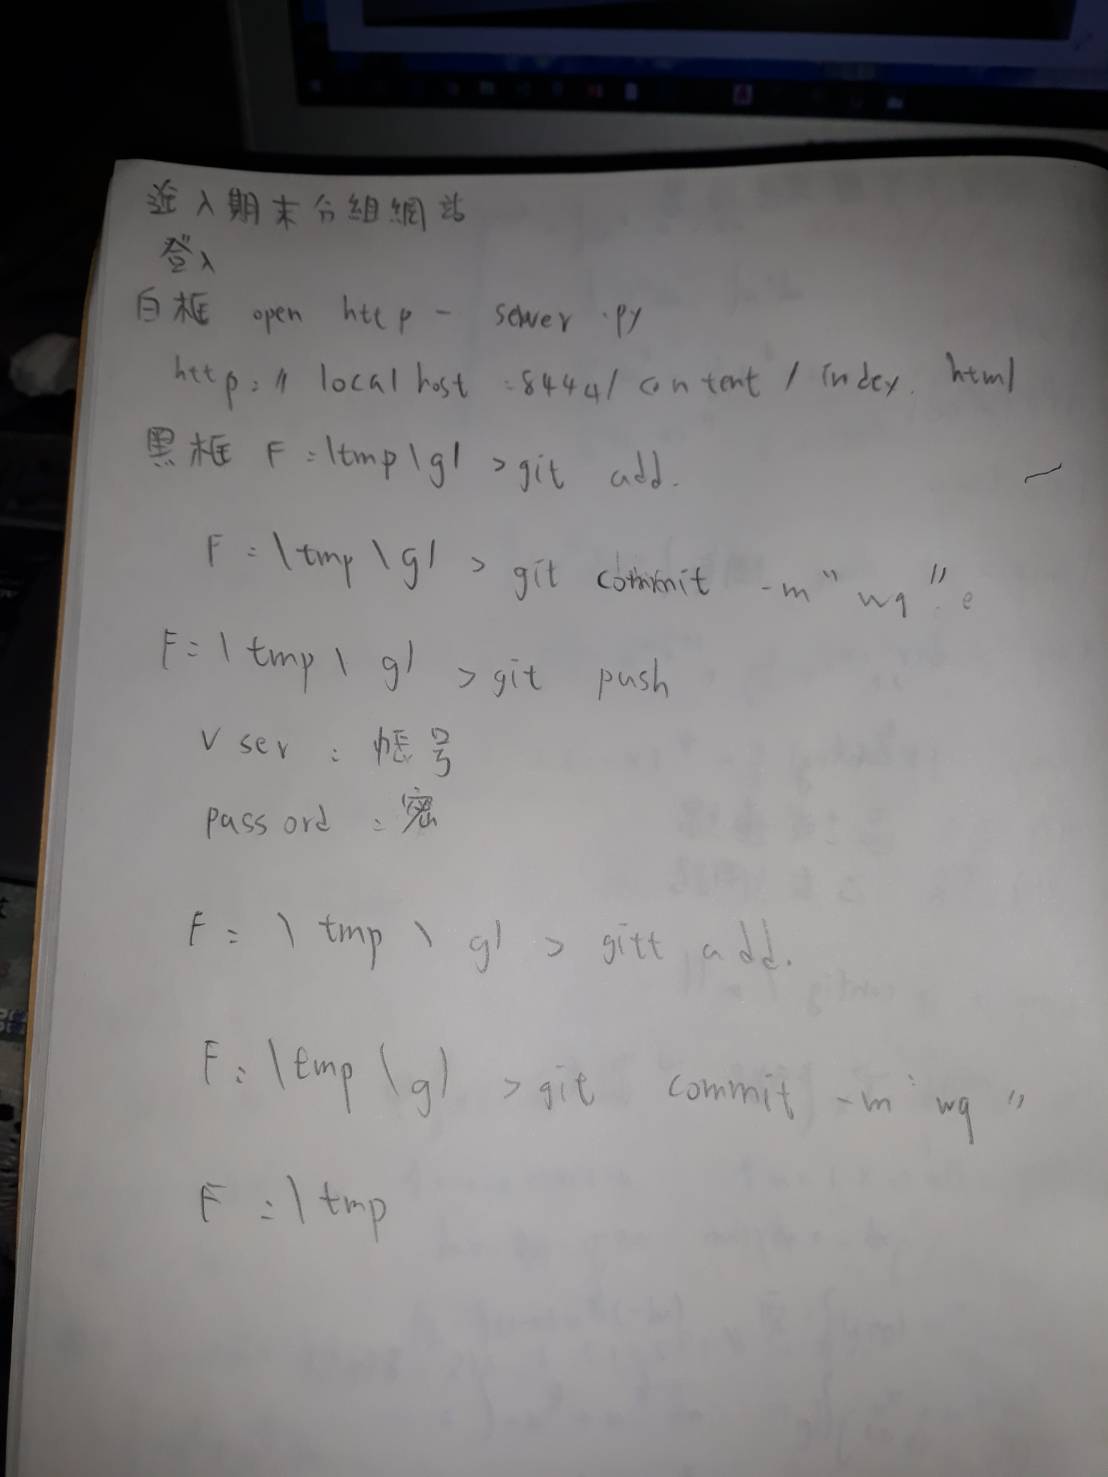 近入期末分組網站
登入
白框 open http - server .py
http:// localhost :8444/ content / index. html
黑框 F:\tmp\g1 >git add.
F:\tmp\g1 > git commit -m " wq " e
F:\tmp\ g1 >git push
User : 帳号
passord : 密
F: \ tmp \ g1 > gitt add.
F:\tmp\g1 >git commit -m " wq "
F:\tmp